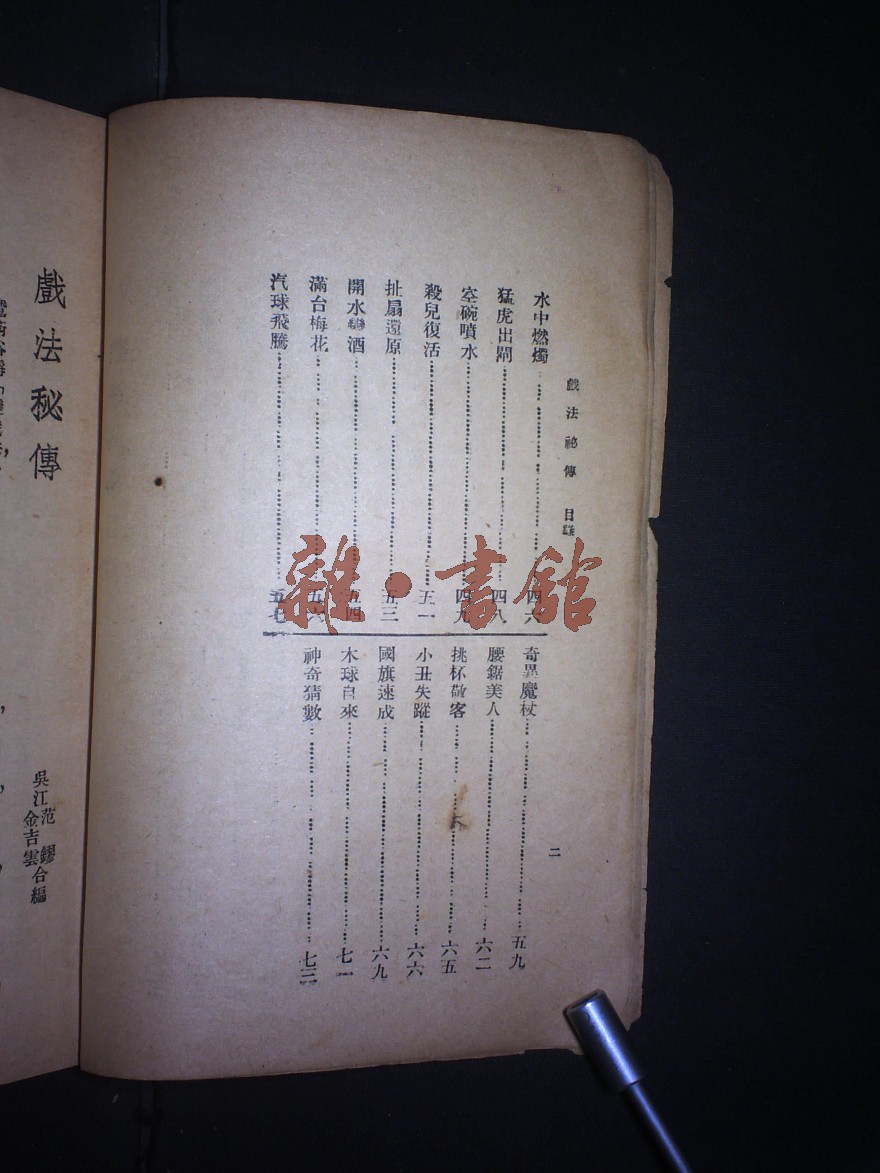 戲法祕傳 目錄
二
水中燃燭 四六
猛虎出閘 四八
空碗噴水 四九
殺兒復活 五一
扯扇還原 五三
開水變酒 五四
滿台梅花 五六
汽球飛騰 五七
奇異魔杖 五九
腰鋸美人 六二
挑杯敬客 六五
小丑失蹤 六六
國旗速成 六九
木球自來 七一
神奇猜數 七三
雜·書館
戲法秘傳
吳江范鏐
金吉雲合編